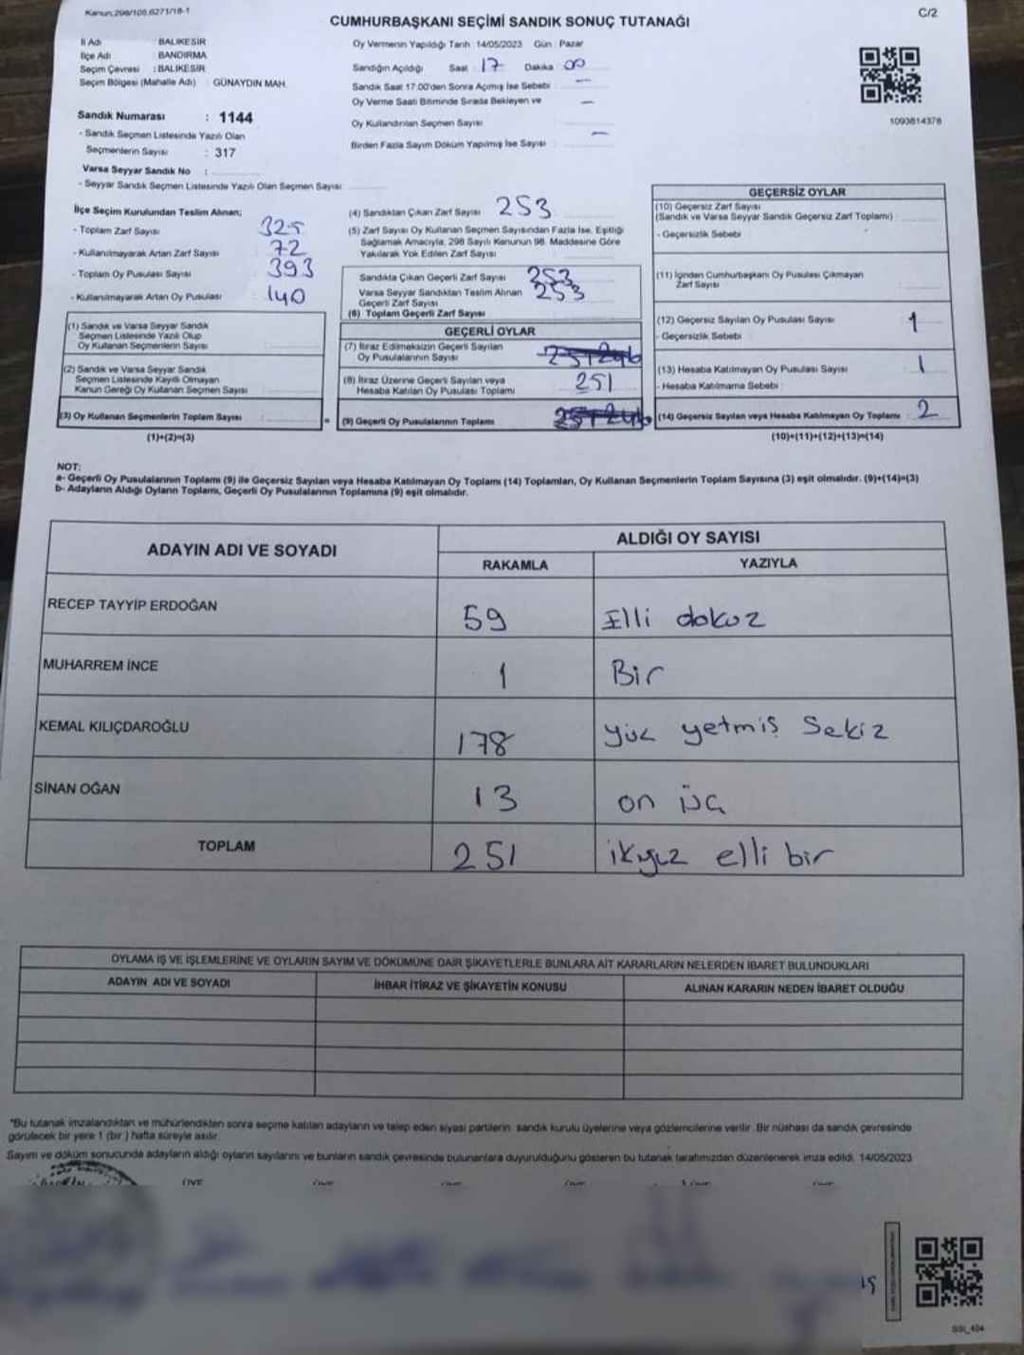 Kanun:298/105,6271/18-1
C/2
CUMHURBAŞKANI SEÇİMİ SANDIK SONUÇ TUTANAĞI
İl Adı : BALIKESİR
İlçe Adı : BANDIRMA
Seçim Çevresi : BALIKESİR
Seçim Bölgesi (Mahalle Adı) : GÜNAYDIN MAH.
Oy Vermenin Yapıldığı Tarih 14/05/2023 Gün : Pazar
Sandığın Açıldığı Saat 17 Dakika 00
Sandık Saat 17:00'den Sonra Açımış İse Sebebi —
Oy Verme Saati Bitiminde Sırada Bekleyen ve —
Oy Kullandırılan Seçmen Sayısı
Birden Fazla Sayım Döküm Yapılmış İse Sayısı —
1093814378
Sandık Numarası : 1144
- Sandık Seçmen Listesinde Yazılı Olan
Seçmenlerin Sayısı : 317
Varsa Seyyar Sandık No :
- Seyyar Sandık Seçmen Listesinde Yazılı Olan Seçmen Sayısı
İlçe Seçim Kurulundan Teslim Alınan;
- Toplam Zarf Sayısı 325
- Kullanılmayarak Artan Zarf Sayısı 72
- Toplam Oy Pusulası Sayısı 393
- Kullanılmayarak Artan Oy Pusulası 140
(1) Sandık ve Varsa Seyyar Sandık
Seçmen Listesinde Yazılı Olup
Oy Kullanan Seçmenlerin Sayısı
(2) Sandık ve Varsa Seyyar Sandık
Seçmen Listesinde Kayıtlı Olmayan
Kanun Gereği Oy Kullanan Seçmen Sayısı
(3) Oy Kullanan Seçmenlerin Toplam Sayısı =
(1)+(2)=(3)
(4) Sandıktan Çıkan Zarf Sayısı 253
(5) Zarf Sayısı Oy Kullanan Seçmen Sayısından Fazla İse, Eşitliği
Sağlamak Amacıyla, 298 Sayılı Kanunun 98. Maddesine Göre
Yakılarak Yok Edilen Zarf Sayısı
Sandıkta Çıkan Geçerli Zarf Sayısı 253
Varsa Seyyar Sandıktan Teslim Alınan 253
Geçerli Zarf Sayısı
(6) Toplam Geçerli Zarf Sayısı
GEÇERLİ OYLAR
(7) İtiraz Edilmeksizin Geçerli Sayılan
Oy Pusulalarının Sayısı
(8) İtiraz Üzerine Geçerli Sayılan veya 251
Hesaba Katılan Oy Pusulası Toplamı
(9) Geçerli Oy Pusulalarının Toplamı
GEÇERSİZ OYLAR
(10) Geçersiz Zarf Sayısı
(Sandık ve Varsa Seyyar Sandık Geçersiz Zarf Toplamı)
- Geçersizlik Sebebi
(11) İçinden Cumhurbaşkanı Oy Pusulası Çıkmayan
Zarf Sayısı
(12) Geçersiz Sayılan Oy Pusulası Sayısı 1
- Geçersizlik Sebebi
(13) Hesaba Katılmayan Oy Pusulası Sayısı 1
- Hesaba Katılmama Sebebi
(14) Geçersiz Sayılan veya Hesaba Katılmayan Oy Toplamı 2
(10)+(11)+(12)+(13)=(14)
NOT:
a- Geçerli Oy Pusulalarının Toplamı (9) ile Geçersiz Sayılan veya Hesaba Katılmayan Oy Toplamı (14) Toplamları, Oy Kullanan Seçmenlerin Toplam Sayısına (3) eşit olmalıdır. (9)+(14)=(3)
b- Adayların Aldığı Oyların Toplamı, Geçerli Oy Pusulalarının Toplamına (9) eşit olmalıdır.
ADAYIN ADI VE SOYADI
ALDIĞI OY SAYISI
RAKAMLA YAZIYLA
RECEP TAYYİP ERDOĞAN 59 Elli dokuz
MUHARREM İNCE 1 Bir
KEMAL KILIÇDAROĞLU 178 yüz yetmiş Sekiz
SİNAN OĞAN 13 on üç
TOPLAM 251 ikiyüz elli bir
OYLAMA İŞ VE İŞLEMLERİNE VE OYLARIN SAYIM VE DÖKÜMÜNE DAİR ŞİKAYETLERLE BUNLARA AİT KARARLARIN NELERDEN İBARET BULUNDUKLARI
ADAYIN ADI VE SOYADI İHBAR İTİRAZ VE ŞİKAYETİN KONUSU ALINAN KARARIN NEDEN İBARET OLDUĞU
*Bu tutanak imzalandıktan ve mühürlendikten sonra seçime katılan adayların ve talep eden siyasi partilerin sandık kurulu üyelerine veya gözlemcilerine verilir. Bir nüshası da sandık çevresinde
görülecek bir yere 1 (bir) hafta süreyle asılır.
Sayım ve döküm sonucunda adayların aldığı oyların sayılarını ve bunların sandık çevresinde bulunanlara duyurulduğunu gösteren bu tutanak tarafımızdan düzenlenerek imza edildi. 14/05/2023